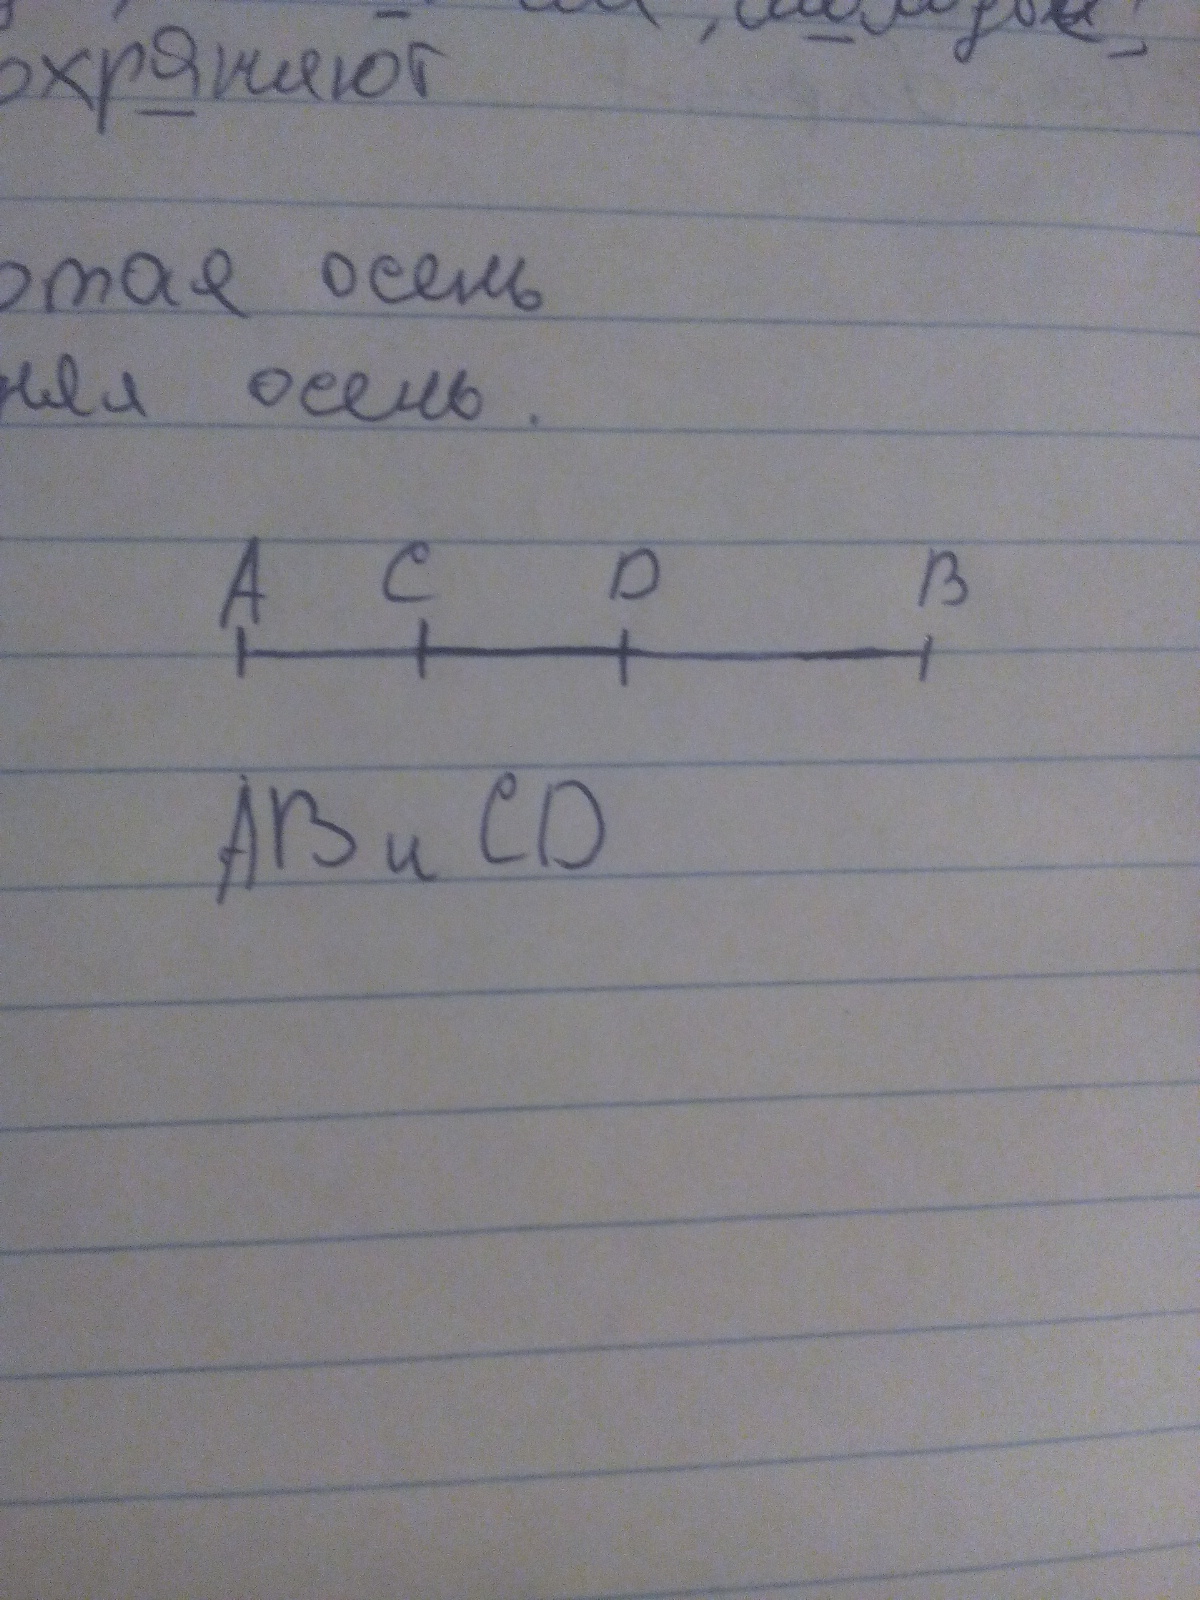 охряняют
отая осень
няя осень.
A C D B
AB и CD